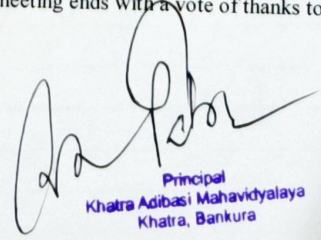 meeting ends with a vote of thanks to
Principal
Khatra Adibasi Mahavidyalaya
Khatra, Bankura